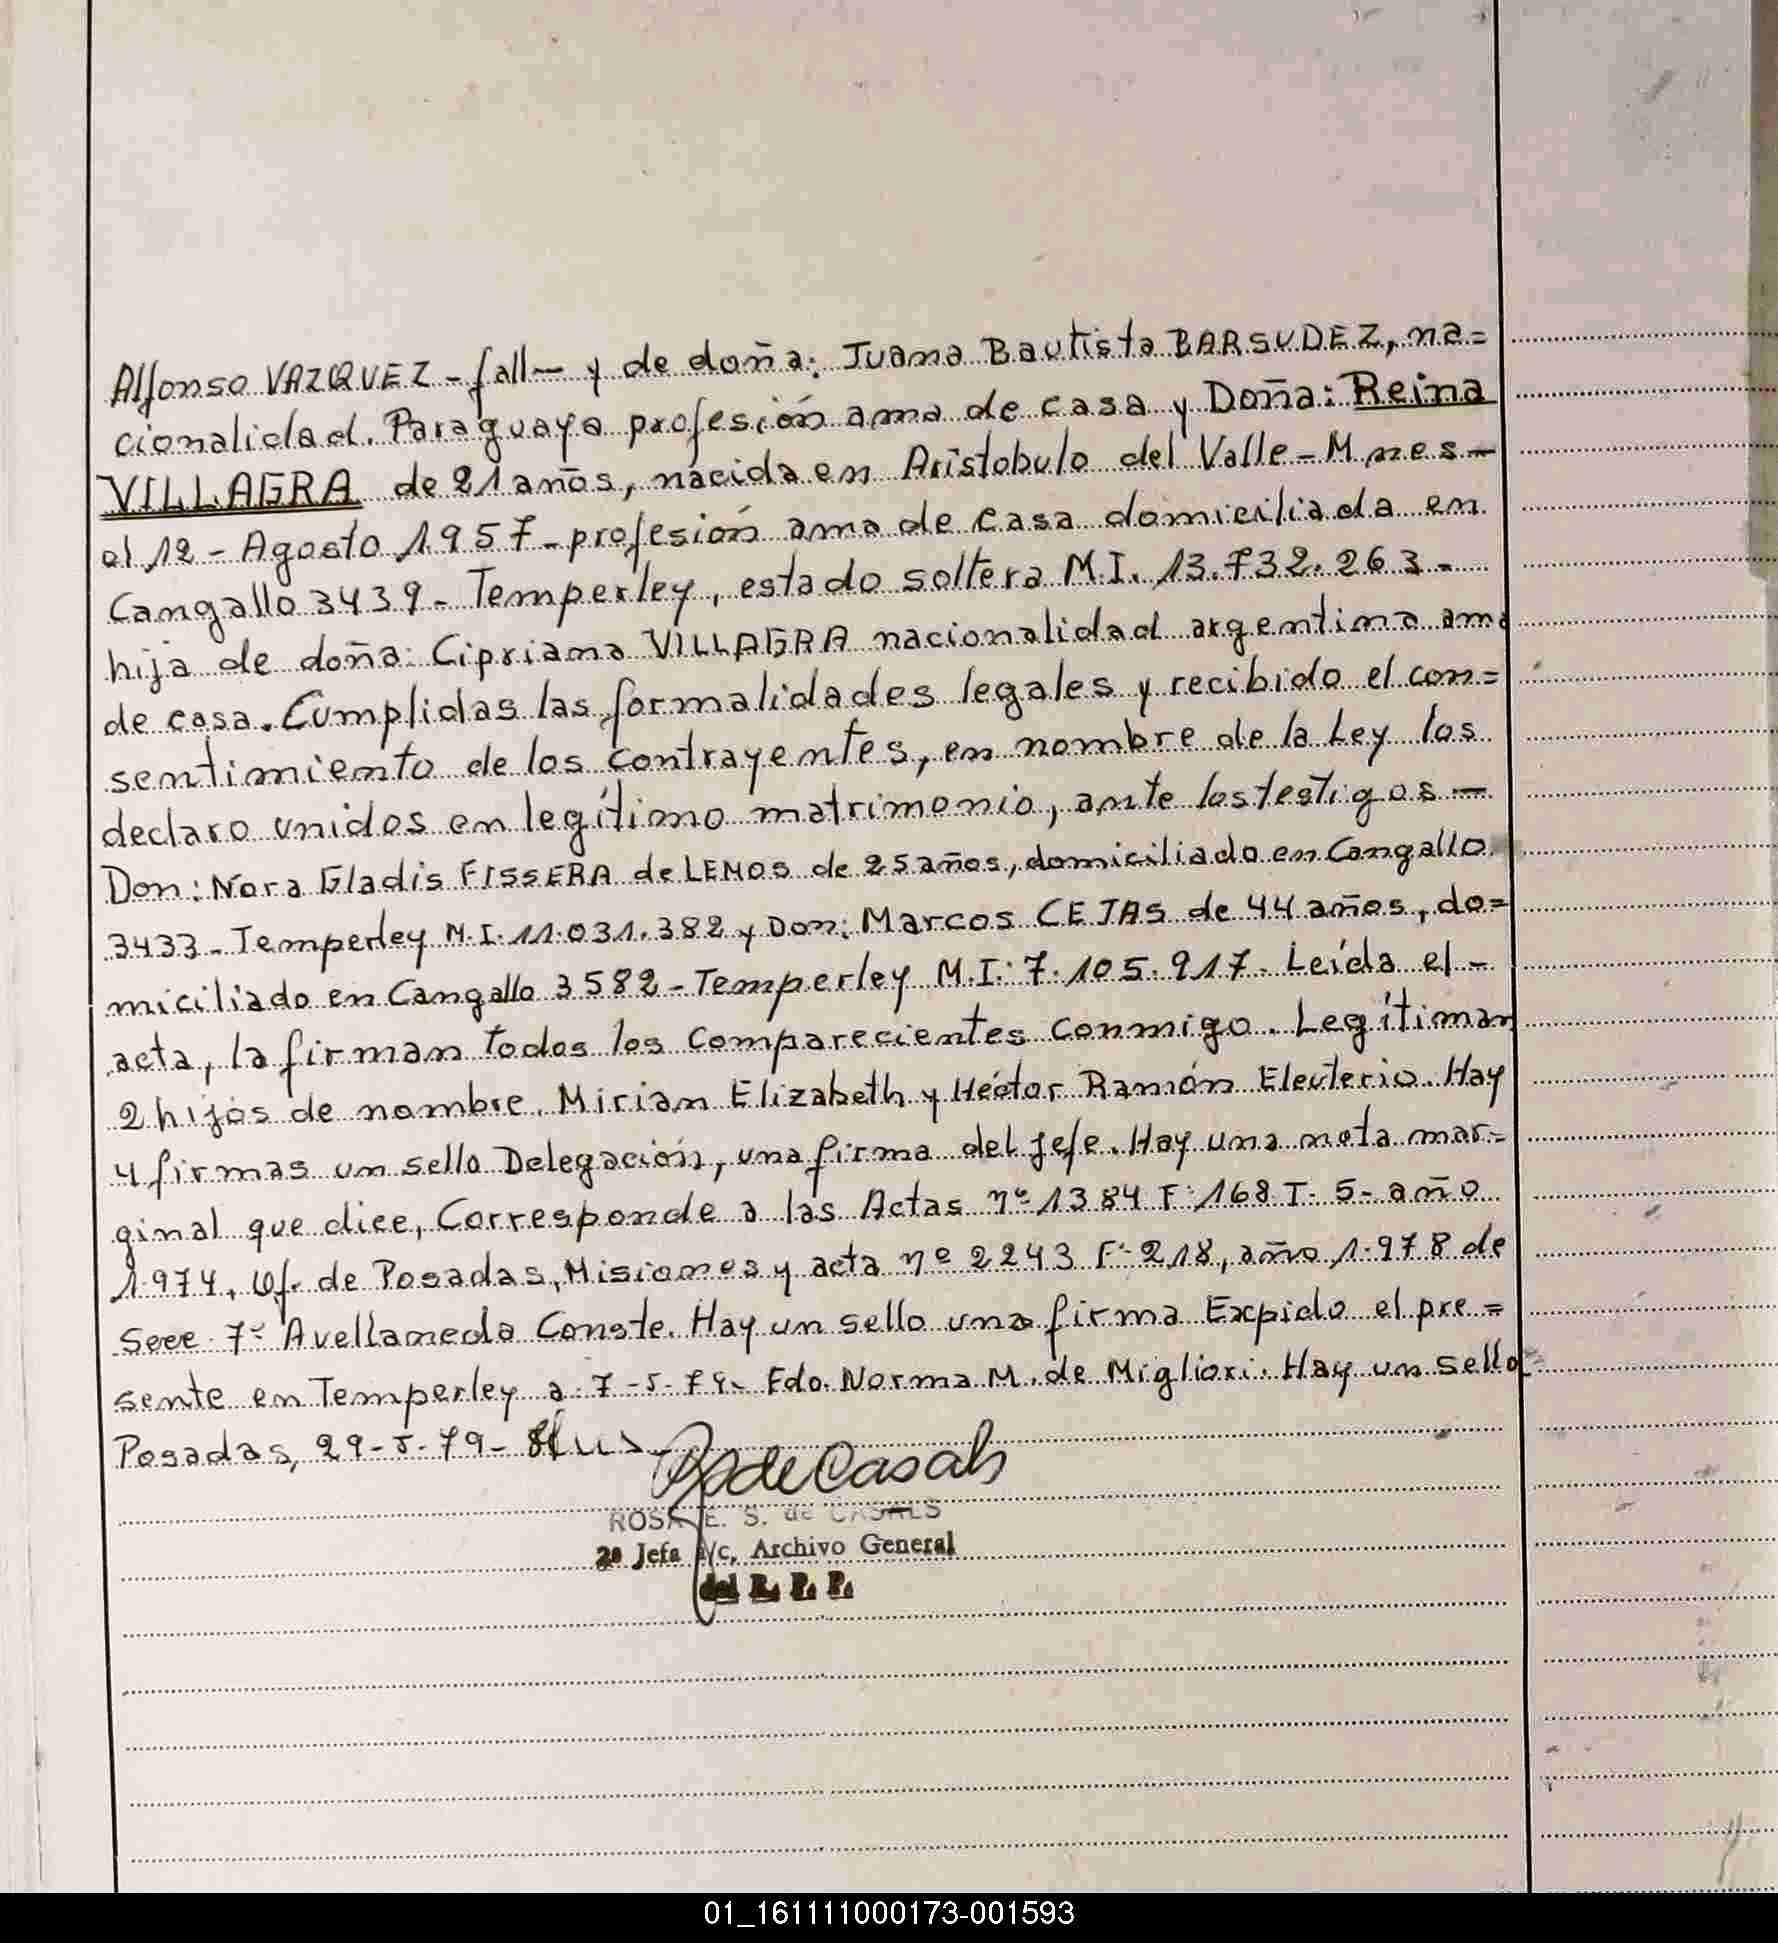 Alfonso VAZQUEZ - fall - y de doña: Juana Bautista BARSUDEZ, na=
cionalidad. Paraguaya profesión ama de casa y Doña: Reina
VILLAGRA de 21 años, nacida en Aristobulo del Valle - Mnes -
el 12 - Agosto 1957 - profesión ama de casa domiciliada en
Cangallo 3439 - Temperley, estado soltera M.I. 13.732.263 -
hija de doña: Cipriana VILLAGRA nacionalidad argentina ama
de casa. Cumplidas las formalidades legales y recibido el con=
sentimiento de los contrayentes, en nombre de la Ley los
declaro unidos en legítimo matrimonio, ante los testigos -
Don: Nora Gladis FISSERA de LEMOS de 25 años, domiciliado en Cangallo
3433 - Temperley M.I. 11.031.382 y Don: Marcos CEJAS de 44 años, do=
miciliado en Cangallo 3582 - Temperley M.I: 7.105.917. Leída el -
acta, la firman todos los comparecientes conmigo. Legítiman
2 hijos de nombre. Mirian Elizabeth y Héctor Ramón Eleuterio. Hay
4 firmas un sello Delegación, una firma del jefe. Hay una nota mar=
ginal que dice, Corresponde a las Actas nº 1384 F: 168 T. 5 - año
1.974, Of. de Posadas, Misiones y acta nº 2243 F: 218, año 1.978 de
Secc. 7ª Avellaneda Conste. Hay un sello una firma Expido el pre=
sente en Temperley a 7-5-79. Fdo. Norma M. de Migliori. Hay un sello
Posadas, 29-5-79 -
de Casals
ROSA E. S. de CASALS
2º Jefa a/c. Archivo General
del R. P. P.
01_161111000173-001593